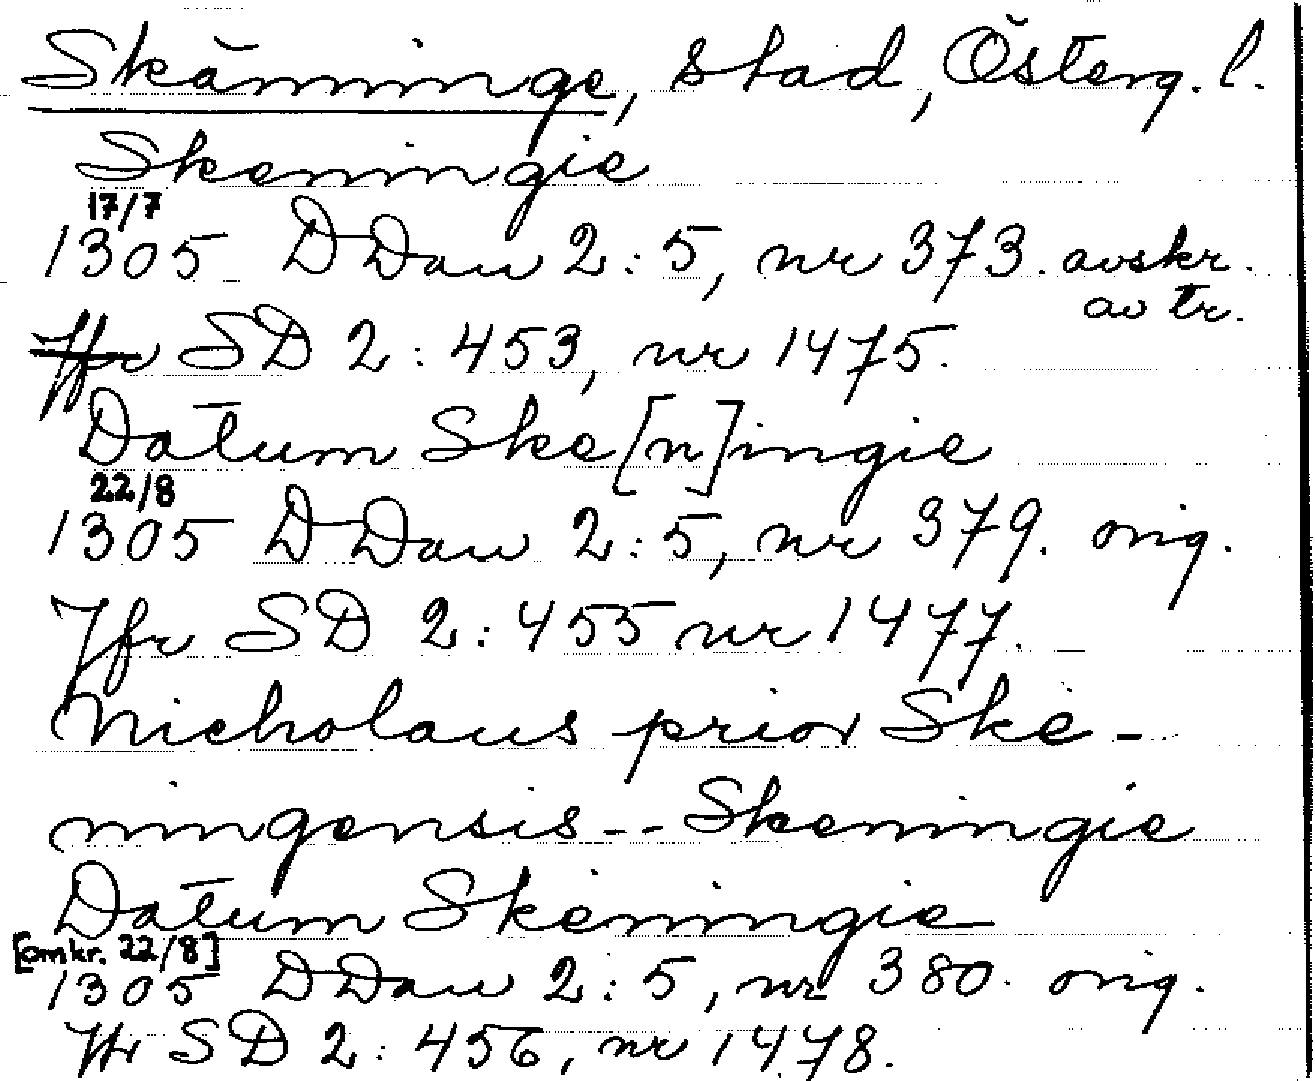 Skänninge, stad, Österg. l.
Skeningie
17/7
1305 DDan 2:5, nr 373. avskr.
av tr.
Jfr SD 2:453, nr 1475.
Datum Ske[n]ingie
22/8
1305 DDan 2:5, nr 379. orig.
Jfr SD 2:455 nr 1477.
Nicholaus prior Ske-
ningensis -- Skeningie
Datum Skeningie
[omkr. 22/8]
1305 DDan 2:5, nr 380. orig.
Jfr SD 2:456, nr 1478.